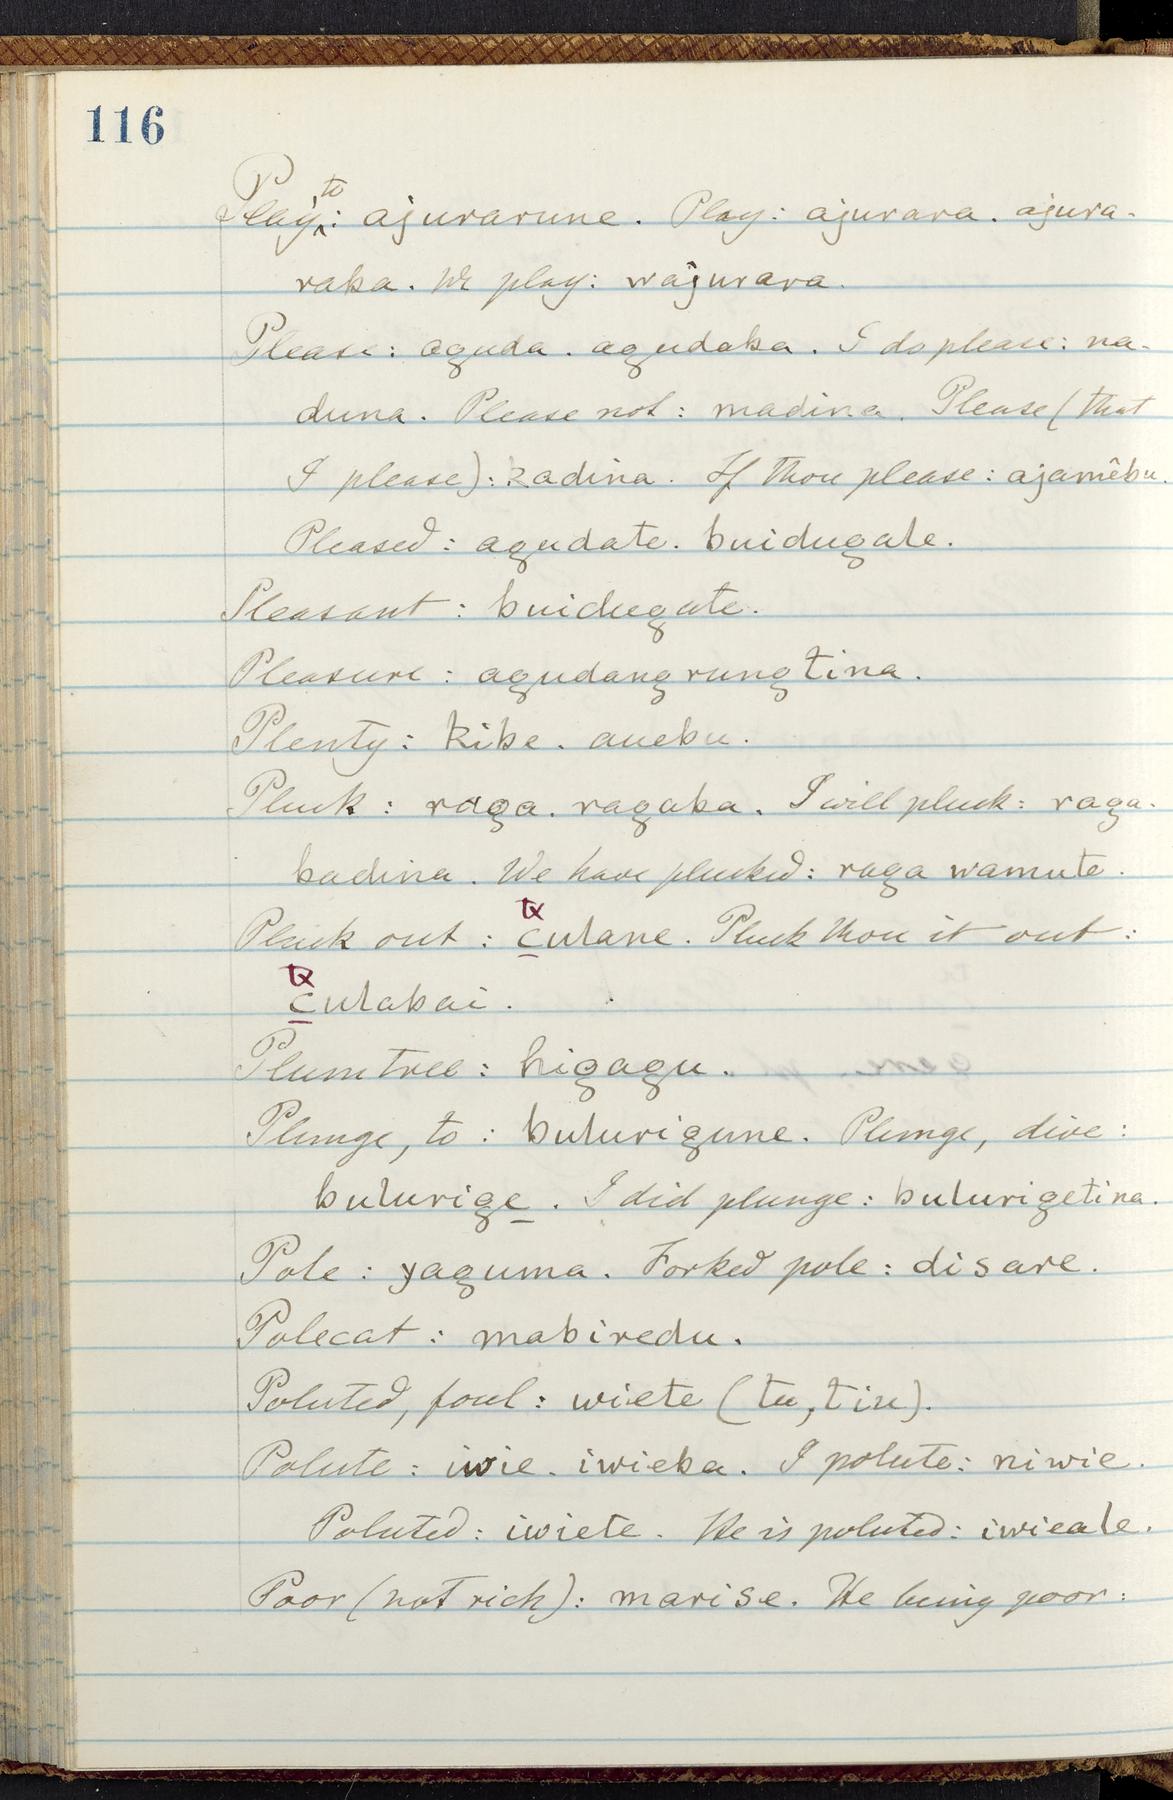 116
Play, to: ajurarune. Play: ajurara. ajura-
raka. We play: wajurara.
Please: aguda. agudaba. I do please: na-
duna. Please not: madina. Please (that
I please): kadina. If thou please: ajamêbu.
Pleased: agudate. buidugale.
Pleasant: buidugate.
Pleasure: agudangrungtina.
Plenty: kibe. auebu.
Pluck: raga. ragaba. I will pluck: raga-
badina. We have plucked: raga wamute.
tx
Pluck out: culane. Pluck thou it out:
tx
culabai.
Plumtree: higagu.
Plunge, to: bulurigune. Plunge, dive:
bulurige. I did plunge: bulurigetina.
Pole: yaguma. Forked pole: disare.
Polecat: mabiredu.
Poluted, foul: wiete (tu, tiu).
Polute: iwie. iwieba. I polute: niwie.
Poluted: iwiete. He is poluted: iwieale.
Poor (not rich): marise. He being poor: